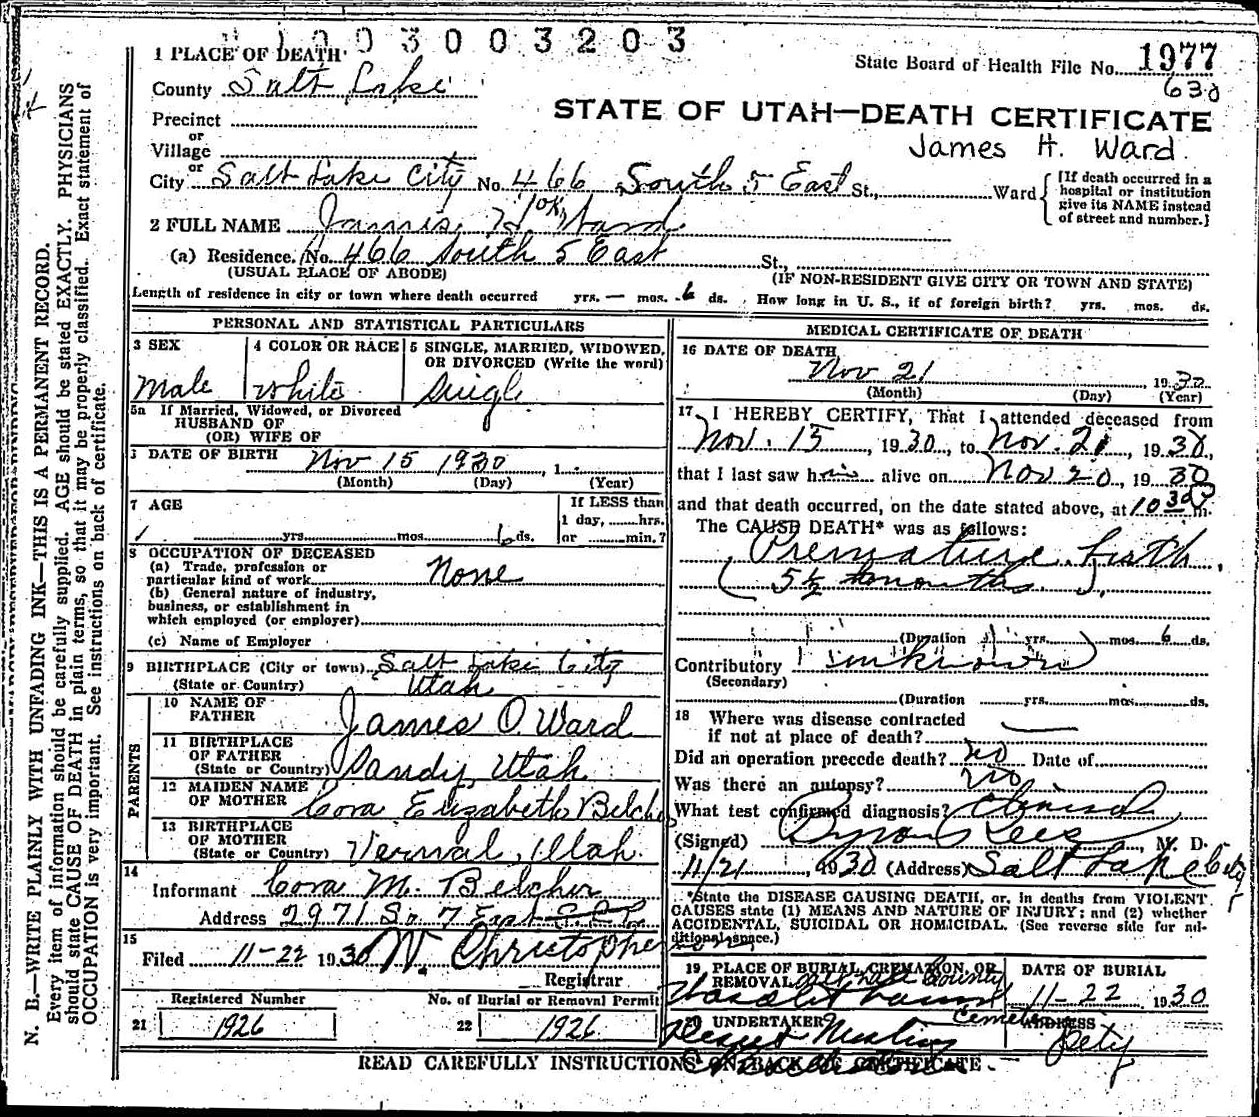 1003003203
1 PLACE OF DEATH
State Board of Health File No. 1977
630
County Salt Lake
STATE OF UTAH—DEATH CERTIFICATE
Precinct
or
Village
James H. Ward
or
City Salt Lake City No. 466 South 5 East St., Ward
[If death occurred in a
hospital or institution
give its NAME instead
of street and number.]
2 FULL NAME James H. Ward
OK
(a) Residence. No. 466 South 5 East St.,
(USUAL PLACE OF ABODE) (IF NON-RESIDENT GIVE CITY OR TOWN AND STATE)
Length of residence in city or town where death occurred yrs. — mos. 6 ds. How long in U. S., if of foreign birth? yrs. mos. ds.
PERSONAL AND STATISTICAL PARTICULARS
3 SEX
Male
4 COLOR OR RACE
White
5 SINGLE, MARRIED, WIDOWED,
OR DIVORCED (Write the word)
Single
5a If Married, Widowed, or Divorced
HUSBAND OF
(OR) WIFE OF
DATE OF BIRTH Nov 15 1930, 1
(Month) (Day) (Year)
7 AGE
yrs. mos. 6 ds.
If LESS than
1 day, hrs.
or min.?
8 OCCUPATION OF DECEASED
(a) Trade, profession or
particular kind of work None
(b) General nature of industry,
business, or establishment in
which employed (or employer)
(c) Name of Employer
9 BIRTHPLACE (City or town) Salt Lake City
(State or Country) Utah
PARENTS
10 NAME OF
FATHER James O. Ward
11 BIRTHPLACE
OF FATHER
(State or Country) Sandy, Utah
12 MAIDEN NAME
OF MOTHER Cora Elizabeth Belcher
13 BIRTHPLACE
OF MOTHER
(State or Country) Vernal, Utah.
14
Informant Cora M. Belcher
Address 2971 So 7 East
15
Filed 11-22 1930 W. Christopher
Registrar
Registered Number
21 1926
No. of Burial or Removal Permit
22 1926
MEDICAL CERTIFICATE OF DEATH
16 DATE OF DEATH
Nov 21 1930
(Month) (Day) (Year)
17 I HEREBY CERTIFY, That I attended deceased from
Nov. 15, 1930, to Nov. 21, 1930,
that I last saw him alive on Nov 20, 1930
and that death occurred, on the date stated above, at 10 30 P m.
The CAUSE DEATH* was as follows:
Premature birth
(5½ months)
(Duration yrs. mos. 6 ds.
Contributory unknown
(Secondary)
(Duration yrs. mos. ds.
18 Where was disease contracted
if not at place of death?
Did an operation precede death? no Date of
Was there an autopsy? no
What test confirmed diagnosis? Clinical
(Signed) Byron Rees M. D.
11/21, 1930 (Address) Salt Lake City
*State the DISEASE CAUSING DEATH, or, in deaths from VIOLENT
CAUSES state (1) MEANS AND NATURE OF INJURY; and (2) whether
ACCIDENTAL, SUICIDAL OR HOMICIDAL. (See reverse side for ad-
ditional space.)
19 PLACE OF BURIAL, CREMATION, OR
REMOVAL County
Cemetery
DATE OF BURIAL
11-22 1930
20 UNDERTAKER Deseret
ADDRESS
City
READ CAREFULLY INSTRUCTIONS ON BACK OF CERTIFICATE
N. B.—WRITE PLAINLY WITH UNFADING INK—THIS IS A PERMANENT RECORD.
Every item of information should be carefully supplied. AGE should be stated EXACTLY. PHYSICIANS
should state CAUSE OF DEATH in plain terms, so that it may be properly classified. Exact statement of
OCCUPATION is very important. See instructions on back of certificate.